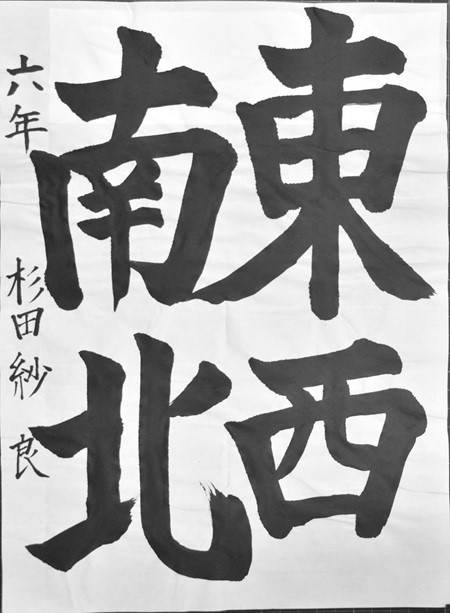 東西
南北
六年 杉田紗良